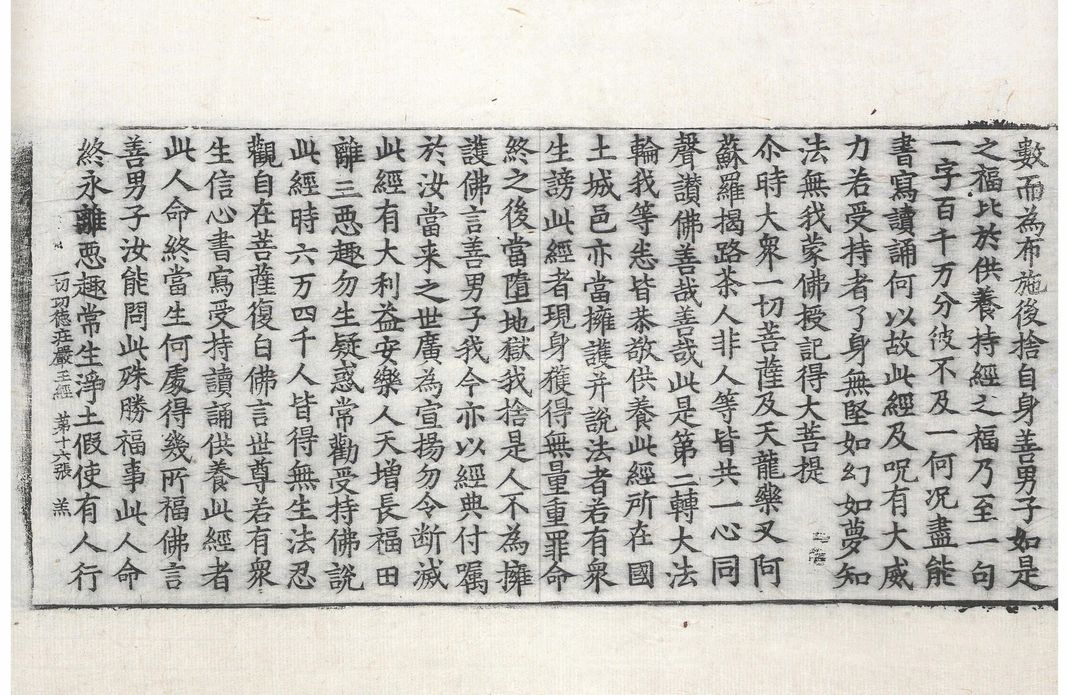 數而為布施後捨自身善男子如是
之福比於供養持經之福乃至一句
一字百千万分彼不及一何况盡能
書寫讀誦何以故此經及呪有大威
力若受持者了身無堅如幻如夢知
法無我蒙佛授記得大菩提
尒時大衆一切菩薩及天龍藥叉阿
蘇羅揭路荼人非人等皆共一心同
聲讃佛善哉善哉此是第二轉大法
輪我等悉皆恭敬供養此經所在國
土城邑亦當擁護并說法者若有衆
生謗此經者現身獲得無量重罪命
終之後當墮地獄我捨是人不為擁
護佛言善男子我今亦以經典付嘱
於汝當来之世廣為宣揚勿令断滅
此經有大利益安樂人天增長福田
離三惡趣勿生疑惑常勸受持佛說
此經時六万四千人皆得無生法忍
觀自在菩薩復白佛言世尊若有衆
生信心書寫受持讀誦供養此經者
此人命終當生何處得幾所福佛言
善男子汝能問此殊勝福事此人命
終永離惡趣常生淨土假使有人行
一切功德莊嚴王經 第十六張 羔